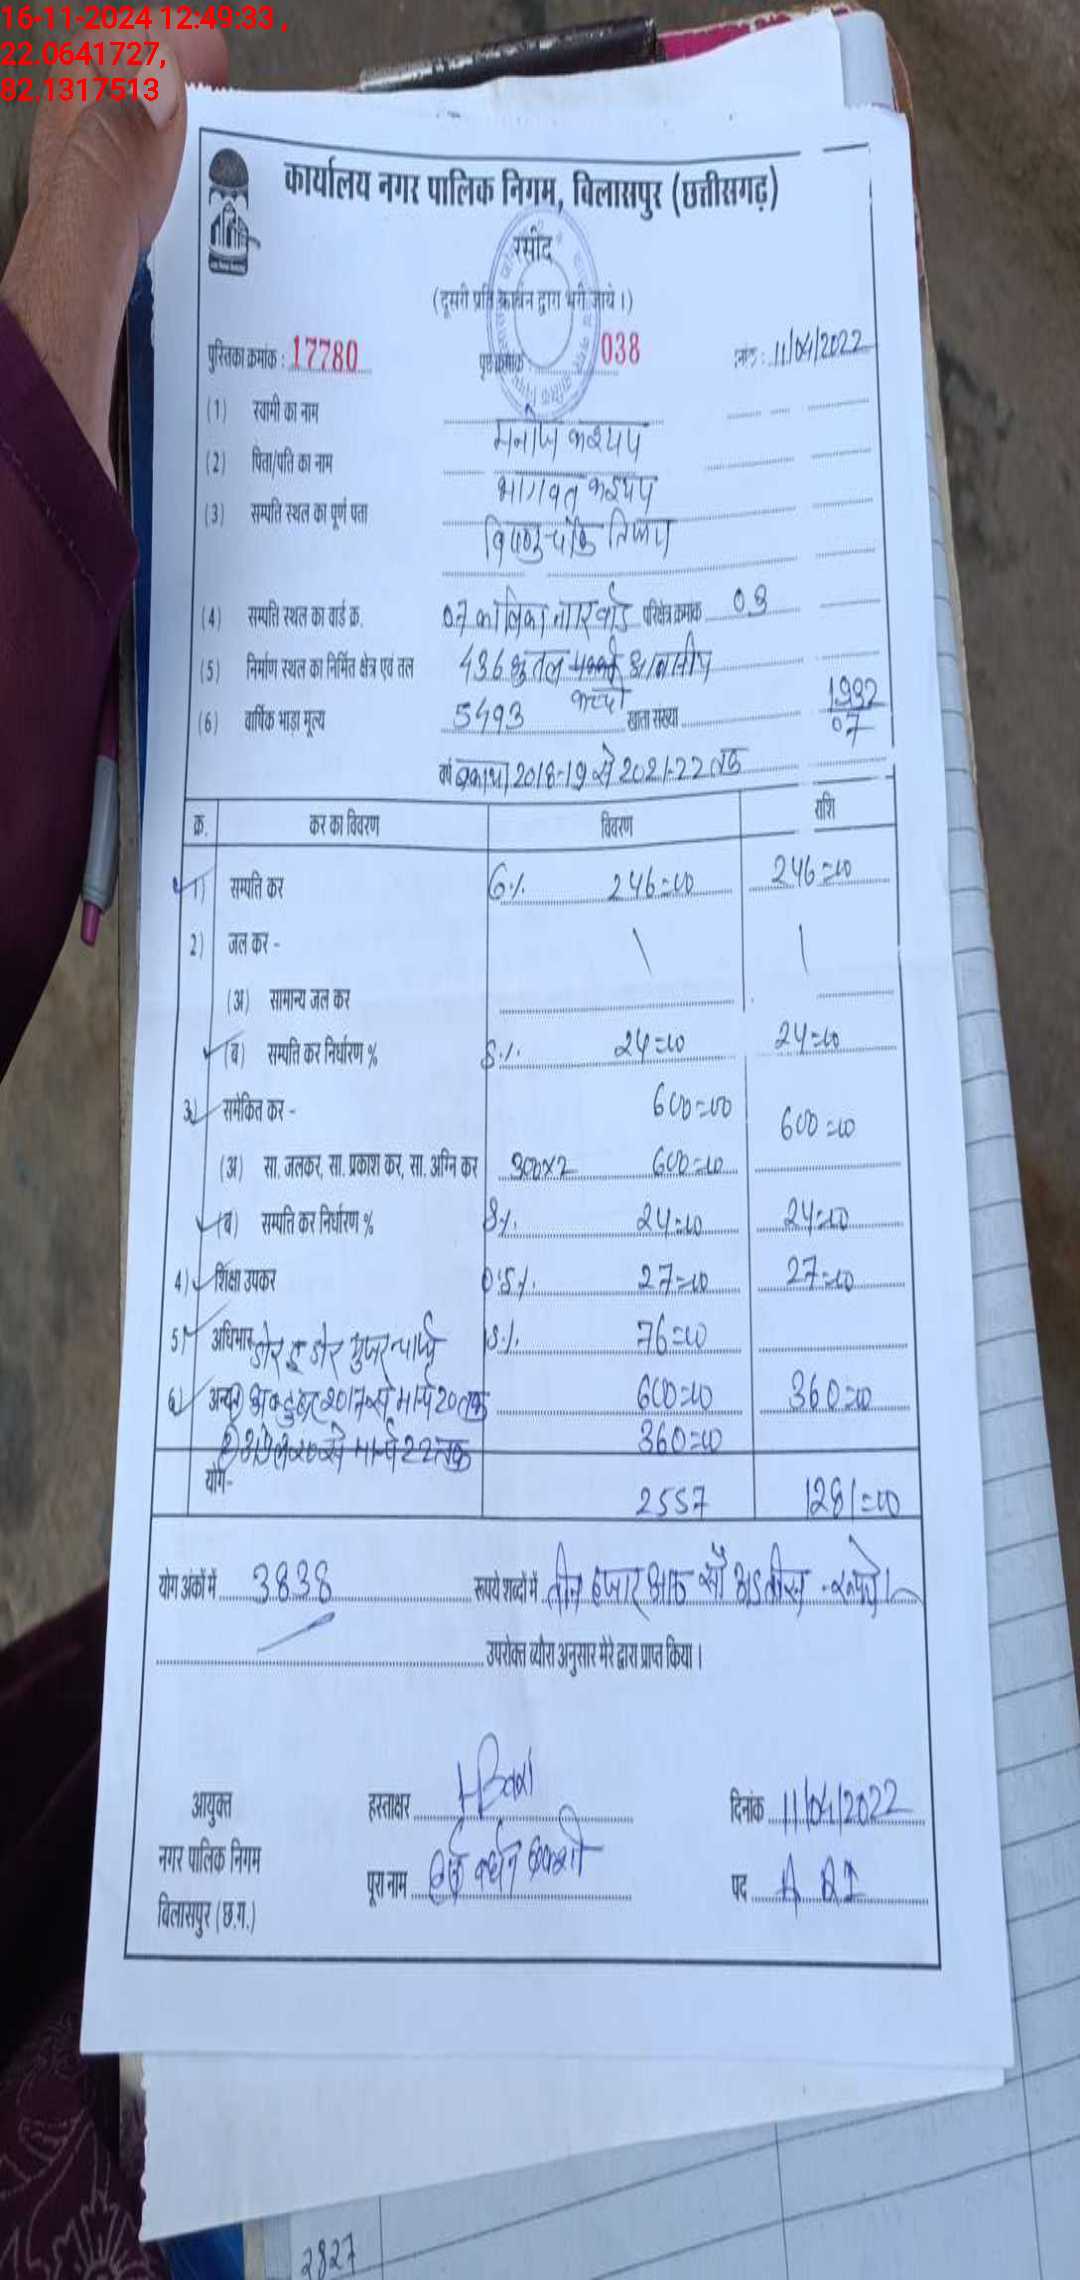 16-11-2024 12:49:33 ,
22.0641727,
82.1317513
कार्यालय नगर पालिक निगम, बिलासपुर (छत्तीसगढ़)
रसीद
(दूसरी प्रति कार्बन द्वारा भरी जाये।)
पुस्तिका क्रमांक : 17780 पृष्ठ क्रमांक : 038 11/04/2022
(1) स्वामी का नाम मनोज कश्यप
(2) पिता/पति का नाम भागवत कश्यप
(3) सम्पत्ति स्थल का पूर्ण पता विष्णु चौक तिफरा
(4) सम्पत्ति स्थल का वार्ड क्र. 07 कालिका नगर वार्ड परिक्षेत्र क्रमांक 03
(5) निर्माण स्थल का निर्मित क्षेत्र एवं तल 436 भू तल पक्की आवासीय
कच्ची
(6) वार्षिक भाड़ा मूल्य 5493 खाता संख्या 1992/07
वर्ष बकाया 2018-19 से 2021-22 तक
क्र. कर का विवरण विवरण राशि
1) सम्पत्ति कर 6% 246=00 246=00
2) जल कर - \ \
(अ) सामान्य जल कर
(ब) सम्पत्ति कर निर्धारण % 8% 24=00 24=00
3) समेकित कर - 600=00 600=00
(अ) सा. जलकर, सा. प्रकाश कर, सा. अग्नि कर 300x2 600=00
(ब) सम्पत्ति कर निर्धारण % 8% 24=00 24=00
4) शिक्षा उपकर 0.5% 27=00 27=00
5) अधिभार डोर टू डोर युजर चार्ज 76=00
6) अन्य अक्टुबर 2017 से मार्च 20 तक 600=00 360=00
से मार्च 22 तक 360=00
योग- 2557 1281=00
योग अंकों में 3838 रूपये शब्दों में तीन हजार आठ सौ अड़तीस रूपये।
उपरोक्त ब्यौरा अनुसार मेरे द्वारा प्राप्त किया।
आयुक्त हस्ताक्षर दिनांक 11/04/2022
नगर पालिक निगम पूरा नाम पद A R I
बिलासपुर (छ.ग.)
2827